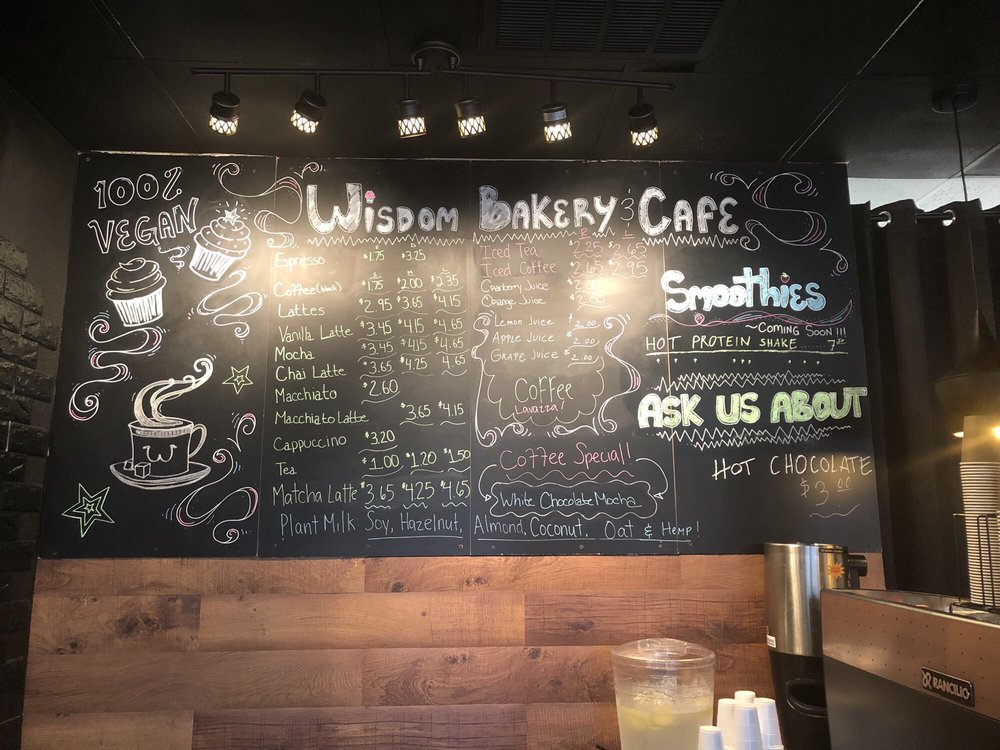 100%
VEGAN
W
WISDOM BAKERY & CAFE
S D
Espresso $1.75 $3.25
S M L
Coffee (black) $1.75 $2.00 $2.35
Lattes $2.95 $3.65 $4.15
Vanilla Latte $3.45 $4.15 $4.65
Mocha $3.45 $4.15 $4.65
Chai Latte $3.65 $4.25 $4.65
Macchiato $2.60
Macchiato Latte $3.65 $4.15
Cappuccino $3.20
Tea $1.00 $1.20 $1.50
Matcha Latte $3.65 $4.25 $4.65
Plant Milk: Soy, Hazelnut, Almond, Coconut, Oat & Hemp!
R L
Iced Tea $2.25 $2.65
Iced Coffee $2.65 $2.95
Cranberry Juice $2.00
Orange Juice $2.00
Lemon Juice $2.00
Apple Juice $2.00
Grape Juice $2.00
Coffee
Lavazza!
Coffee Special!
White Chocolate Mocha
Smoothies
~COMING SOON!!!
HOT PROTEIN SHAKE......7.50
ASK US ABOUT
HOT CHOCOLATE
$3.00
RANCILIO